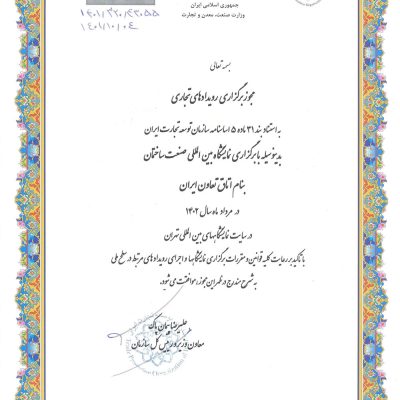 جمهوری اسلامی ایران
وزارت صنعت، معدن و تجارت
۱۴۰۱/۲۲۰/۴۳۰۵۵
۱۴۰۱/۱۰/۰۴
بسمه تعالی
مجوز برگزاری رویدادهای تجاری
به استناد بند ۳۱ ماده ۵ اساسنامه سازمان توسعه تجارت ایران
بدینوسیله با برگزاری نمایشگاه بین المللی صنعت ساختمان
بنام اتاق تعاون ایران
در مرداد ماه سال ۱۴۰۲
در سایت نمایشگاههای بین المللی تهران
با تاکید بر رعایت کلیه قوانین و مقررات برگزاری نمایشگاهها و اجرای رویدادهای مرتبط در سطح ملی
به شرح مندرج در ظهر این مجوز، موافقت می شود
علیرضا پیمان پاک
معاون وزیر و رییس کل سازمان